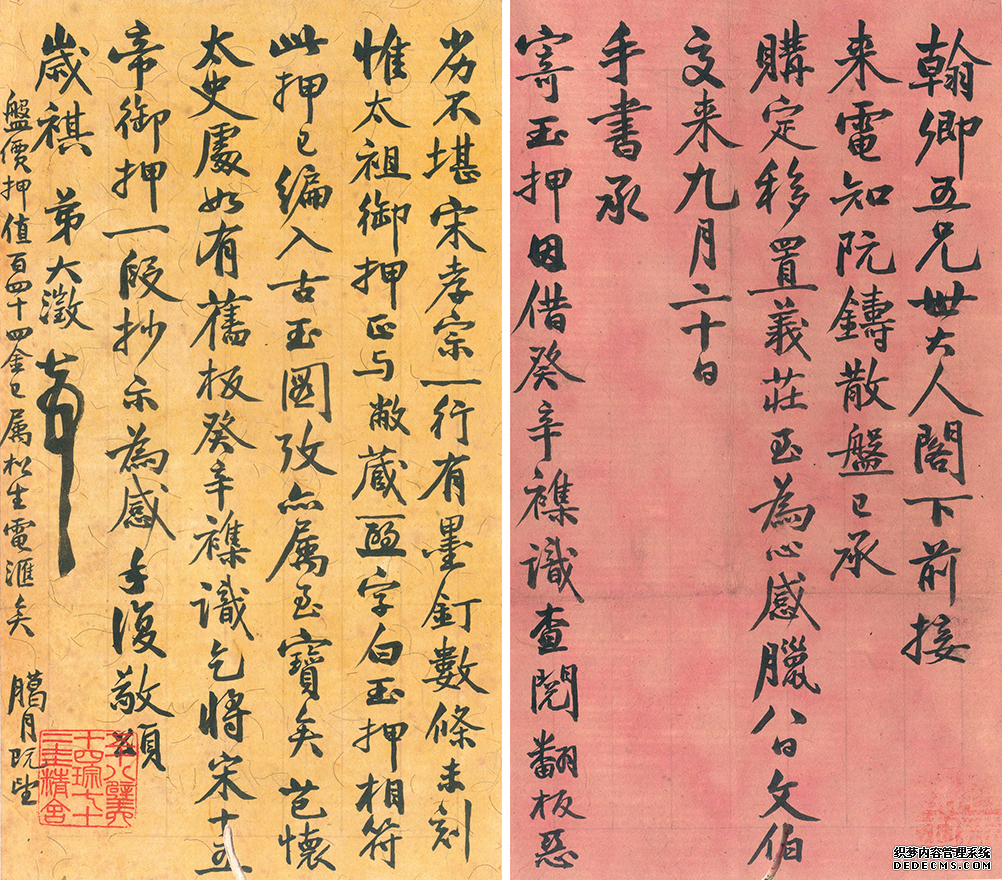 翰卿五兄世大人閣下前接
来電知阮鑄散盤已承
購定移置義莊至為心感臘八日文伯
交来九月二十日
手書承
寄玉押因借癸辛襍識查閱翻板惡
劣不堪宋孝宗一行有墨釘數條未刻
惟太祖御押正与敝蔵字白玉押相符
此押已編入古玉圖攷亦属至寶矣芭懷
太史處如有舊板癸辛襍識乞將宋十五
帝御押一段抄示為感手復敬頌
歲祺 弟大澂
盤價押值百四十四金已属松生電滙矣 臈月既望
五十八璧六
十四琮七十
二圭精舍
织梦内容管理系统
DEDECMS.COM